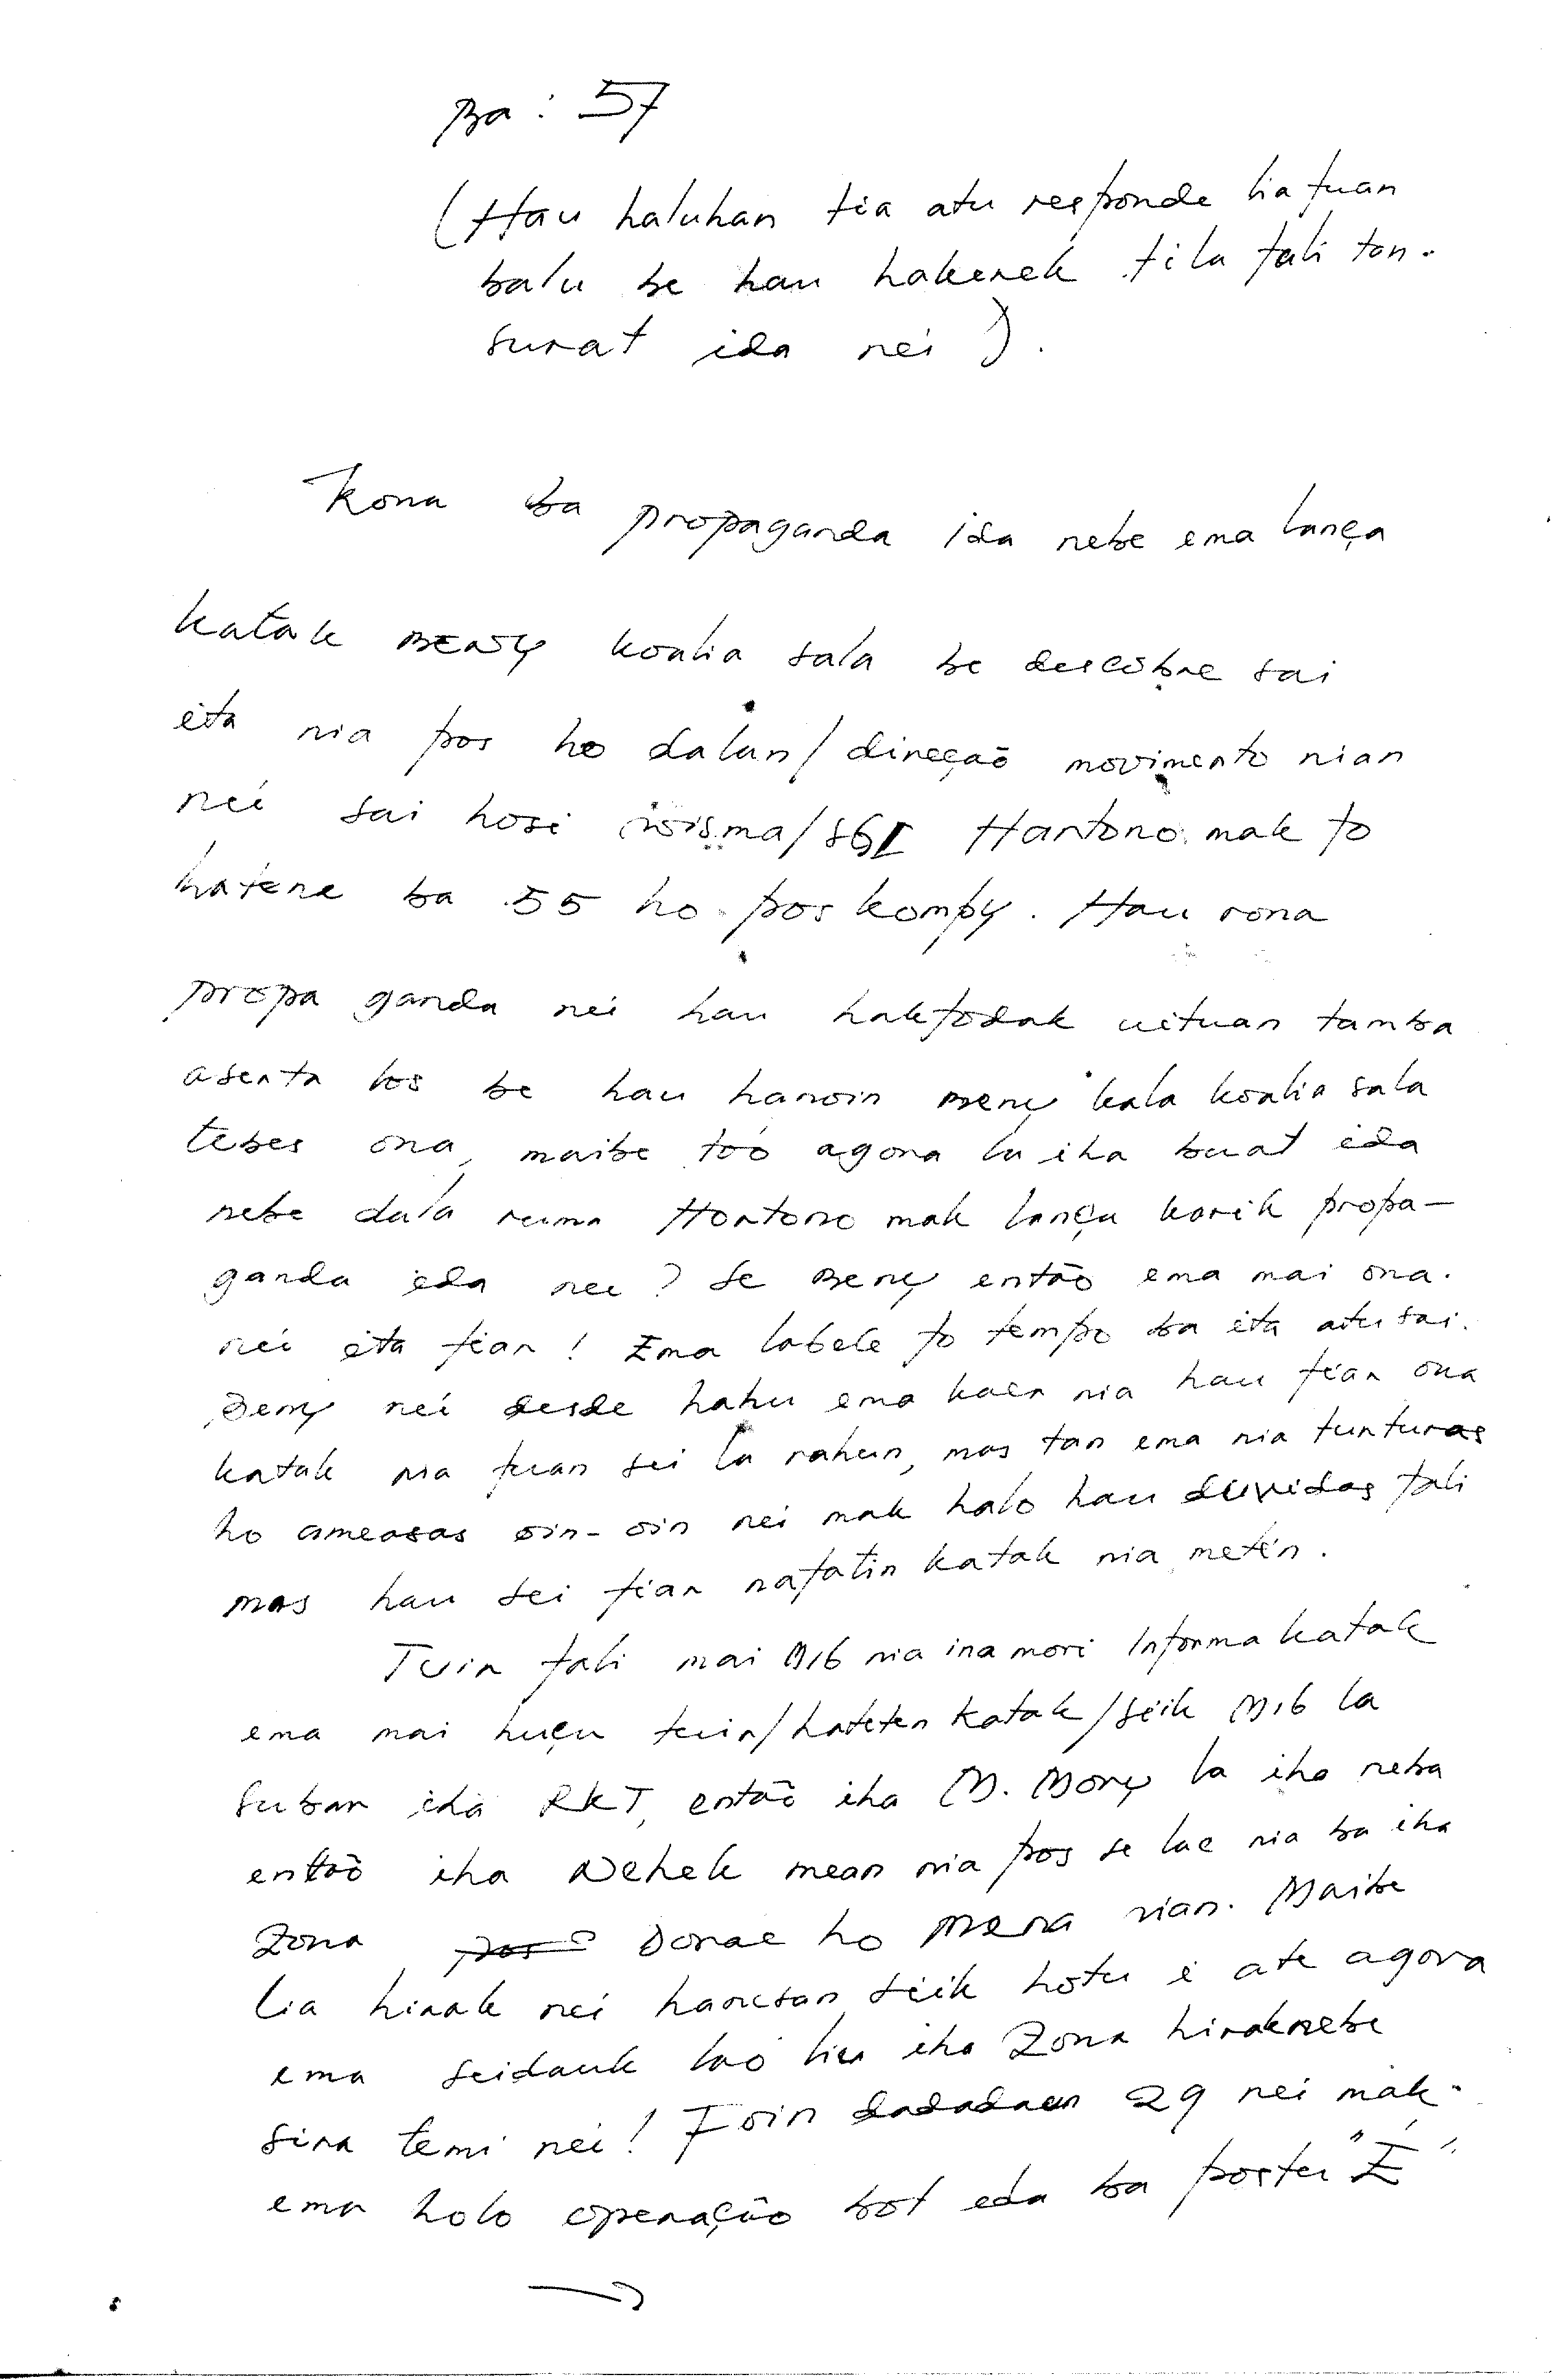 Ba : 57
(Hau haluhan tia atu responde liafuan
balu be hau hakerek fila fali tan
surat ida nei ).
Kona ba propaganda ida nebe ema lança
katak BENY koalia sala be descobre sai
ita nia pos ho dalan/direção movimento nian
nei sai hosi wisma/SGI Hartono mak fo
hatene ba 55 ho pos kompy. Hau rona
propaganda nei hau hakfodak uituan tamba
asenta los be hau hanoin Beny kala koalia sala
tebes ona, maibe too agora la iha buat ida
nebe dula ruma Hortono mak lança karik propa-
ganda ida nei? Se Beny então ema mai ona.
nei ita fiar! Ema labele fo tempo ba ita atu sai.
Beny nei desde hahu ema kaer nia hau fiar ona
katak nia fuan sei la rahun, mas tan ema nia tunturas
ho ameasas oin-oin nei mak halo hau duvidas fali
mas hau sei fiar nafatin katak nia metin.
Tuir fali mai M16 nia ina mori Informa katak
ema mai huçu tuir/hateten katak/seik M16 la
subar iha RKT, então iha M. Mory la iha neba
então iha Nehek mean nia pos se lae nia ba iha
Zona Donae ho Mera nian. Maibe
lia hirak nei hanesan seik hotu i ate agora
ema seidauk lao liu iha Zona hiraknebe
sira temi nei! Foin dadadaun 29 nei mak
ema holo operação bot eda ba postu "Z"